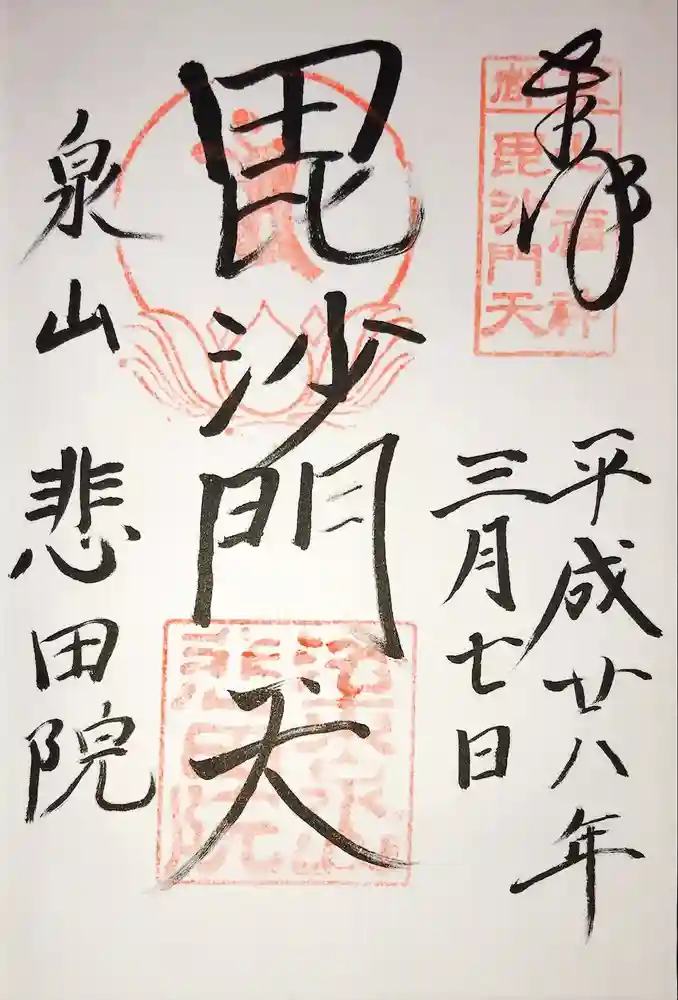 奉拝
平成廿八年
三月七日
毘沙門天
泉山
悲田院
七福神
毘沙門天
悲田院